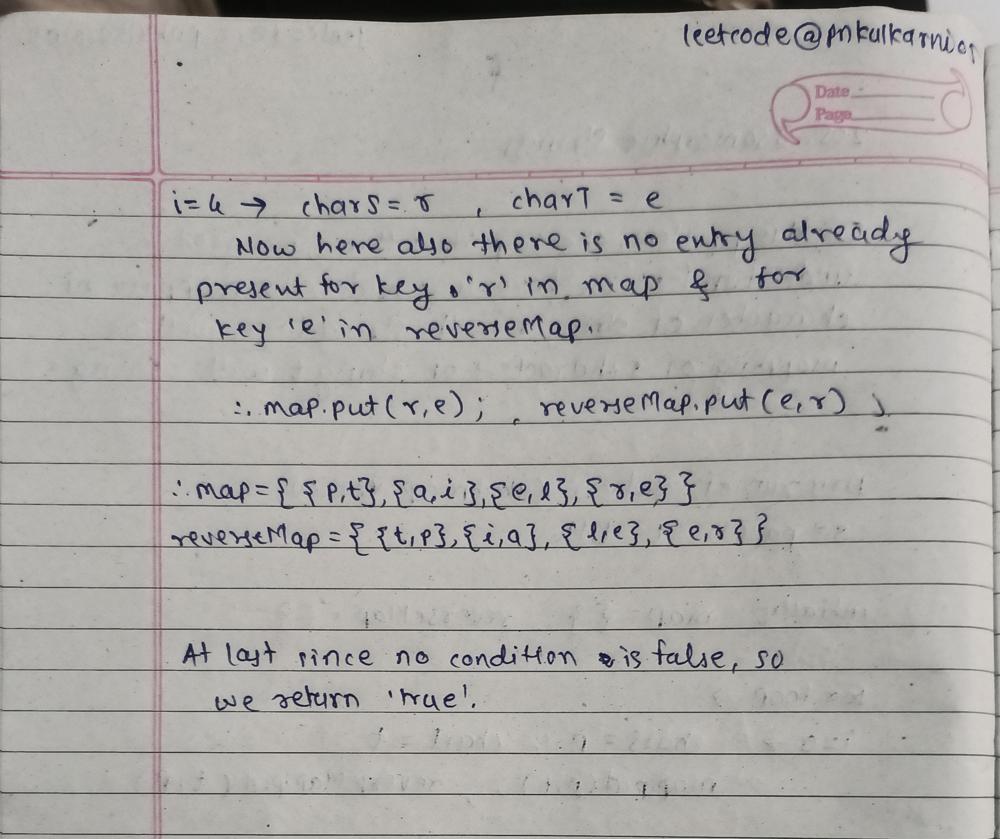 leetcode@pnkulkarni
Date
Page
i=4 → charS = r , charT = e
Now here also there is no entry already
present for key 'r' in map & for
key 'e' in reverseMap.
∴ map.put(r,e); reverseMap.put(e,r);
∴ map={ {p,t},{a,i},{e,l},{r,e} }
reverseMap={ {t,p},{i,a},{l,e},{e,r} }
At last since no condition is false, so
we return 'true'.